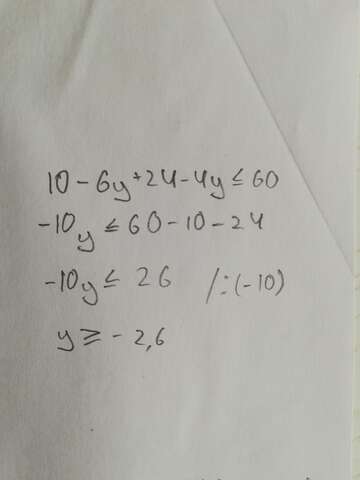 10 - 6y + 24 - 4y ≤ 60
-10y ≤ 60 - 10 - 24
-10y ≤ 26 /:(-10)
y ≥ - 2,6